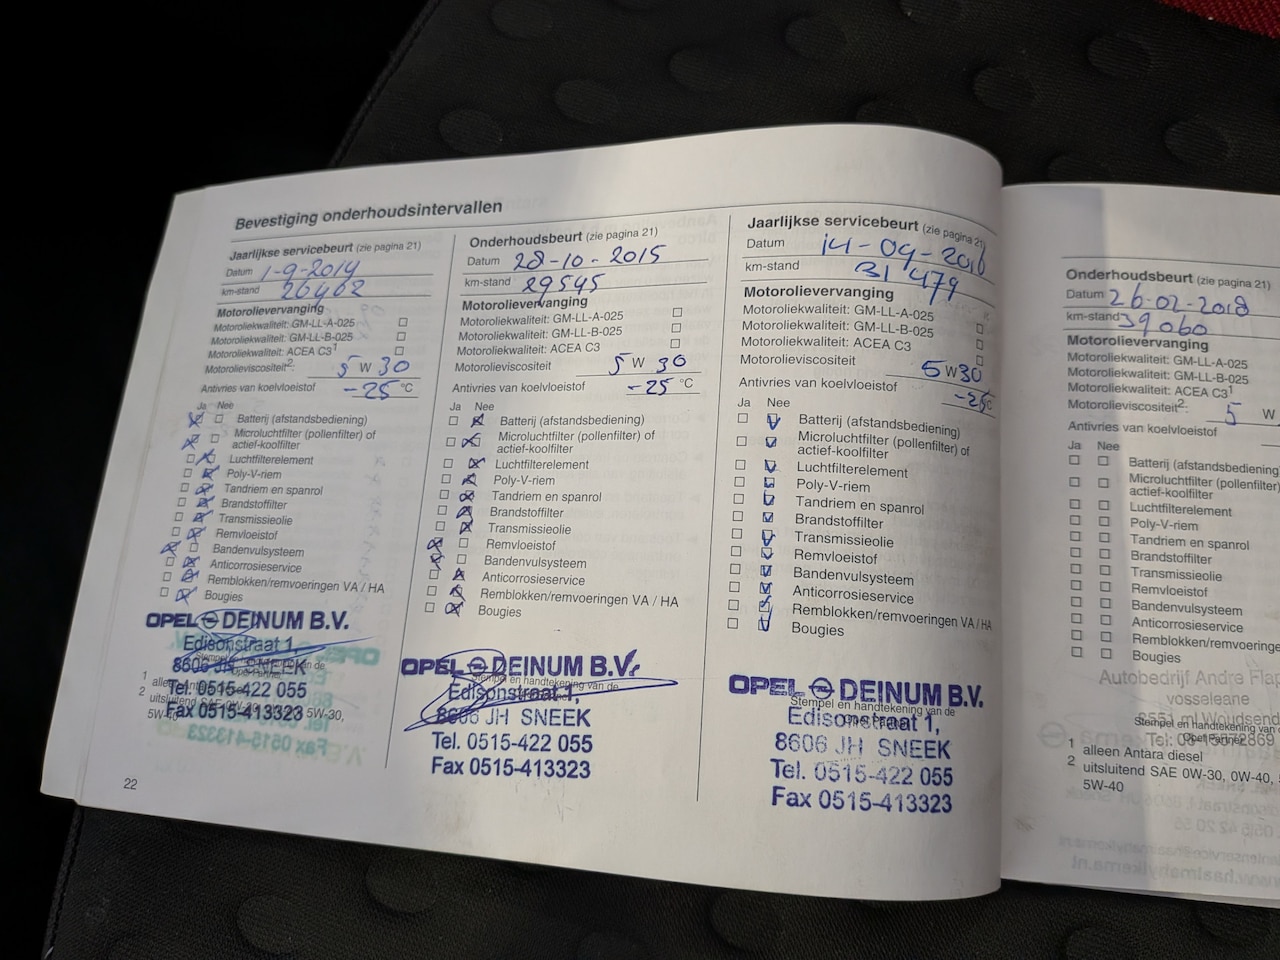 Bevestiging onderhoudsintervallen
Jaarlijkse servicebeurt (zie pagina 21)
Datum 1-9-2014
km-stand 26462
Motorolievervanging
Motoroliekwaliteit: GM-LL-A-025
Motoroliekwaliteit: GM-LL-B-025
Motoroliekwaliteit: ACEA C3¹
Motorolieviscositeit²: 5 W 30
Antivries van koelvloeistof -25 °C
Ja Nee
Batterij (afstandsbediening)
Microluchtfilter (pollenfilter) of
actief-koolfilter
Luchtfilterelement
Poly-V-riem
Tandriem en spanrol
Brandstoffilter
Transmissieolie
Remvloeistof
Bandenvulsysteem
Anticorrosieservice
Remblokken/remvoeringen VA / HA
Bougies
OPEL DEINUM B.V.
Edisonstraat 1,
8606 JH SNEEK
Tel. 0515-422 055
Fax 0515-413323
Stempel en handtekening van de
Opel Partner
1 alleen
2 uitsluitend SAE 0W-30, 5W-30,
5W-40
22
Onderhoudsbeurt (zie pagina 21)
Datum 28-10-2015
km-stand 29545
Motorolievervanging
Motoroliekwaliteit: GM-LL-A-025
Motoroliekwaliteit: GM-LL-B-025
Motoroliekwaliteit: ACEA C3
Motorolieviscositeit 5 W 30
Antivries van koelvloeistof -25 °C
Ja Nee
Batterij (afstandsbediening)
Microluchtfilter (pollenfilter) of
actief-koolfilter
Luchtfilterelement
Poly-V-riem
Tandriem en spanrol
Brandstoffilter
Transmissieolie
Remvloeistof
Bandenvulsysteem
Anticorrosieservice
Remblokken/remvoeringen VA / HA
Bougies
OPEL DEINUM B.V.
Stempel en handtekening van de
Edisonstraat 1,
8606 JH SNEEK
Tel. 0515-422 055
Fax 0515-413323
Jaarlijkse servicebeurt (zie pagina 21)
Datum 14-09-2016
km-stand 31479
Motorolievervanging
Motoroliekwaliteit: GM-LL-A-025
Motoroliekwaliteit: GM-LL-B-025
Motoroliekwaliteit: ACEA C3
Motorolieviscositeit 5 W 30
Antivries van koelvloeistof -25 °C
Ja Nee
Batterij (afstandsbediening)
Microluchtfilter (pollenfilter) of
actief-koolfilter
Luchtfilterelement
Poly-V-riem
Tandriem en spanrol
Brandstoffilter
Transmissieolie
Remvloeistof
Bandenvulsysteem
Anticorrosieservice
Remblokken/remvoeringen VA / HA
Bougies
OPEL DEINUM B.V.
Stempel en handtekening van de
Opel Partner
Edisonstraat 1,
8606 JH SNEEK
Tel. 0515-422 055
Fax 0515-413323
Onderhoudsbeurt (zie pagina 21)
Datum 26-02-2018
km-stand 39060
Motorolievervanging
Motoroliekwaliteit: GM-LL-A-025
Motoroliekwaliteit: GM-LL-B-025
Motoroliekwaliteit: ACEA C3¹
Motorolieviscositeit²: 5 W
Antivries van koelvloeistof
Ja Nee
Batterij (afstandsbediening
Microluchtfilter (pollenfilter)
actief-koolfilter
Luchtfilterelement
Poly-V-riem
Tandriem en spanrol
Brandstoffilter
Transmissieolie
Remvloeistof
Bandenvulsysteem
Anticorrosieservice
Remblokken/remvoeringe
Bougies
Autobedrijf Andre Flap
vosseleane
Stempel en handtekening van de
Opel Partner
1 alleen Antara diesel
2 uitsluitend SAE 0W-30, 0W-40,
5W-40